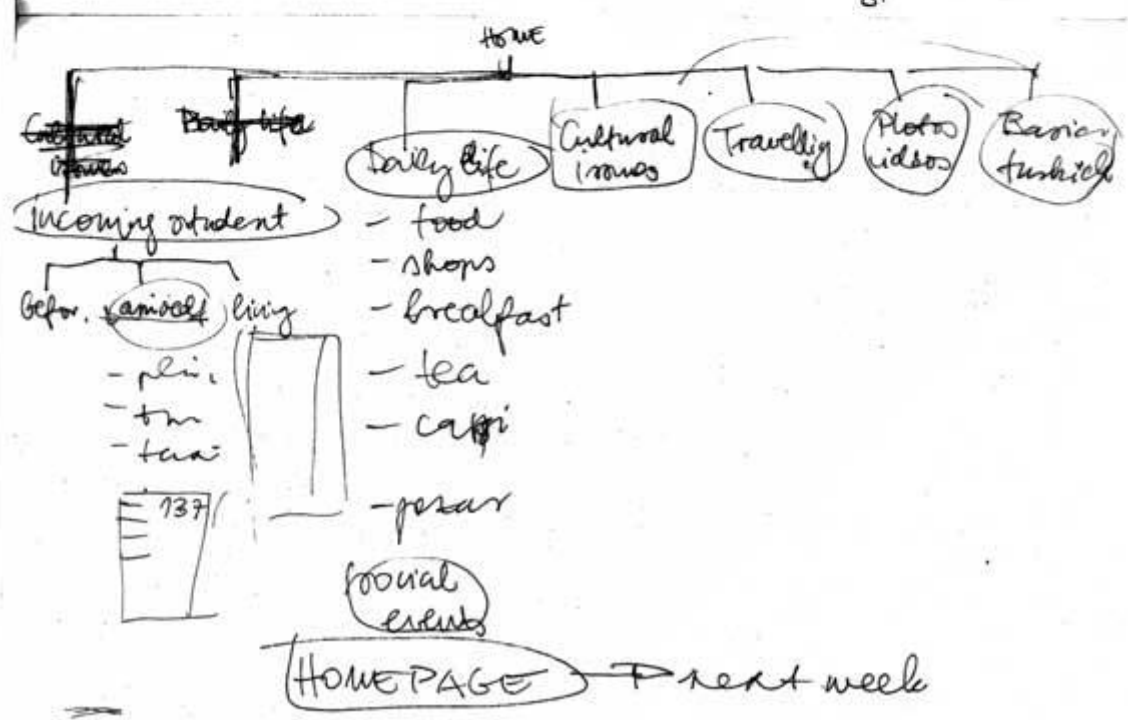 HOME
Cultural
issues
Daily life
Daily life
Cultural
issues
Travelling
Photos
videos
Basic
turkich
Incoming student
befor. arrival living
- food
- shops
- breakfast
- tea
- pazar
137
social
events
HOMEPAGE next week